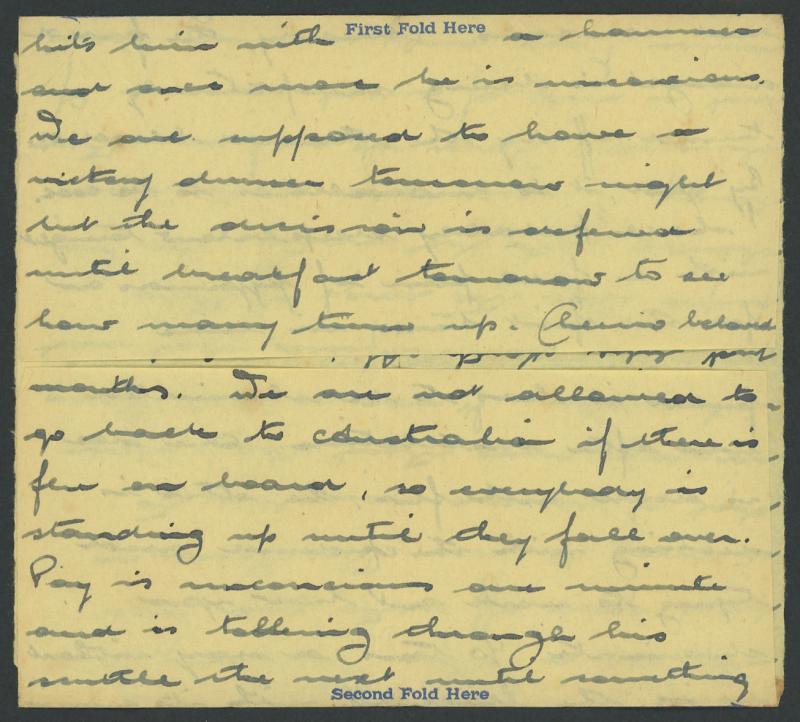 First Fold Here
hits him with a hammer
and once more he is unconcious.
We are supposed to have a
victory dinner tomorrow night
but the decision is deferred
until breakfast tomorrow to see
how many turn up. Cheerio beloved
months. We are not allowed to
go back to Australia if there is
flu on board, so everybody is
standing up until they fall over.
Pay is unconcious one minute
and is talking through his
the next until something
Second Fold Here